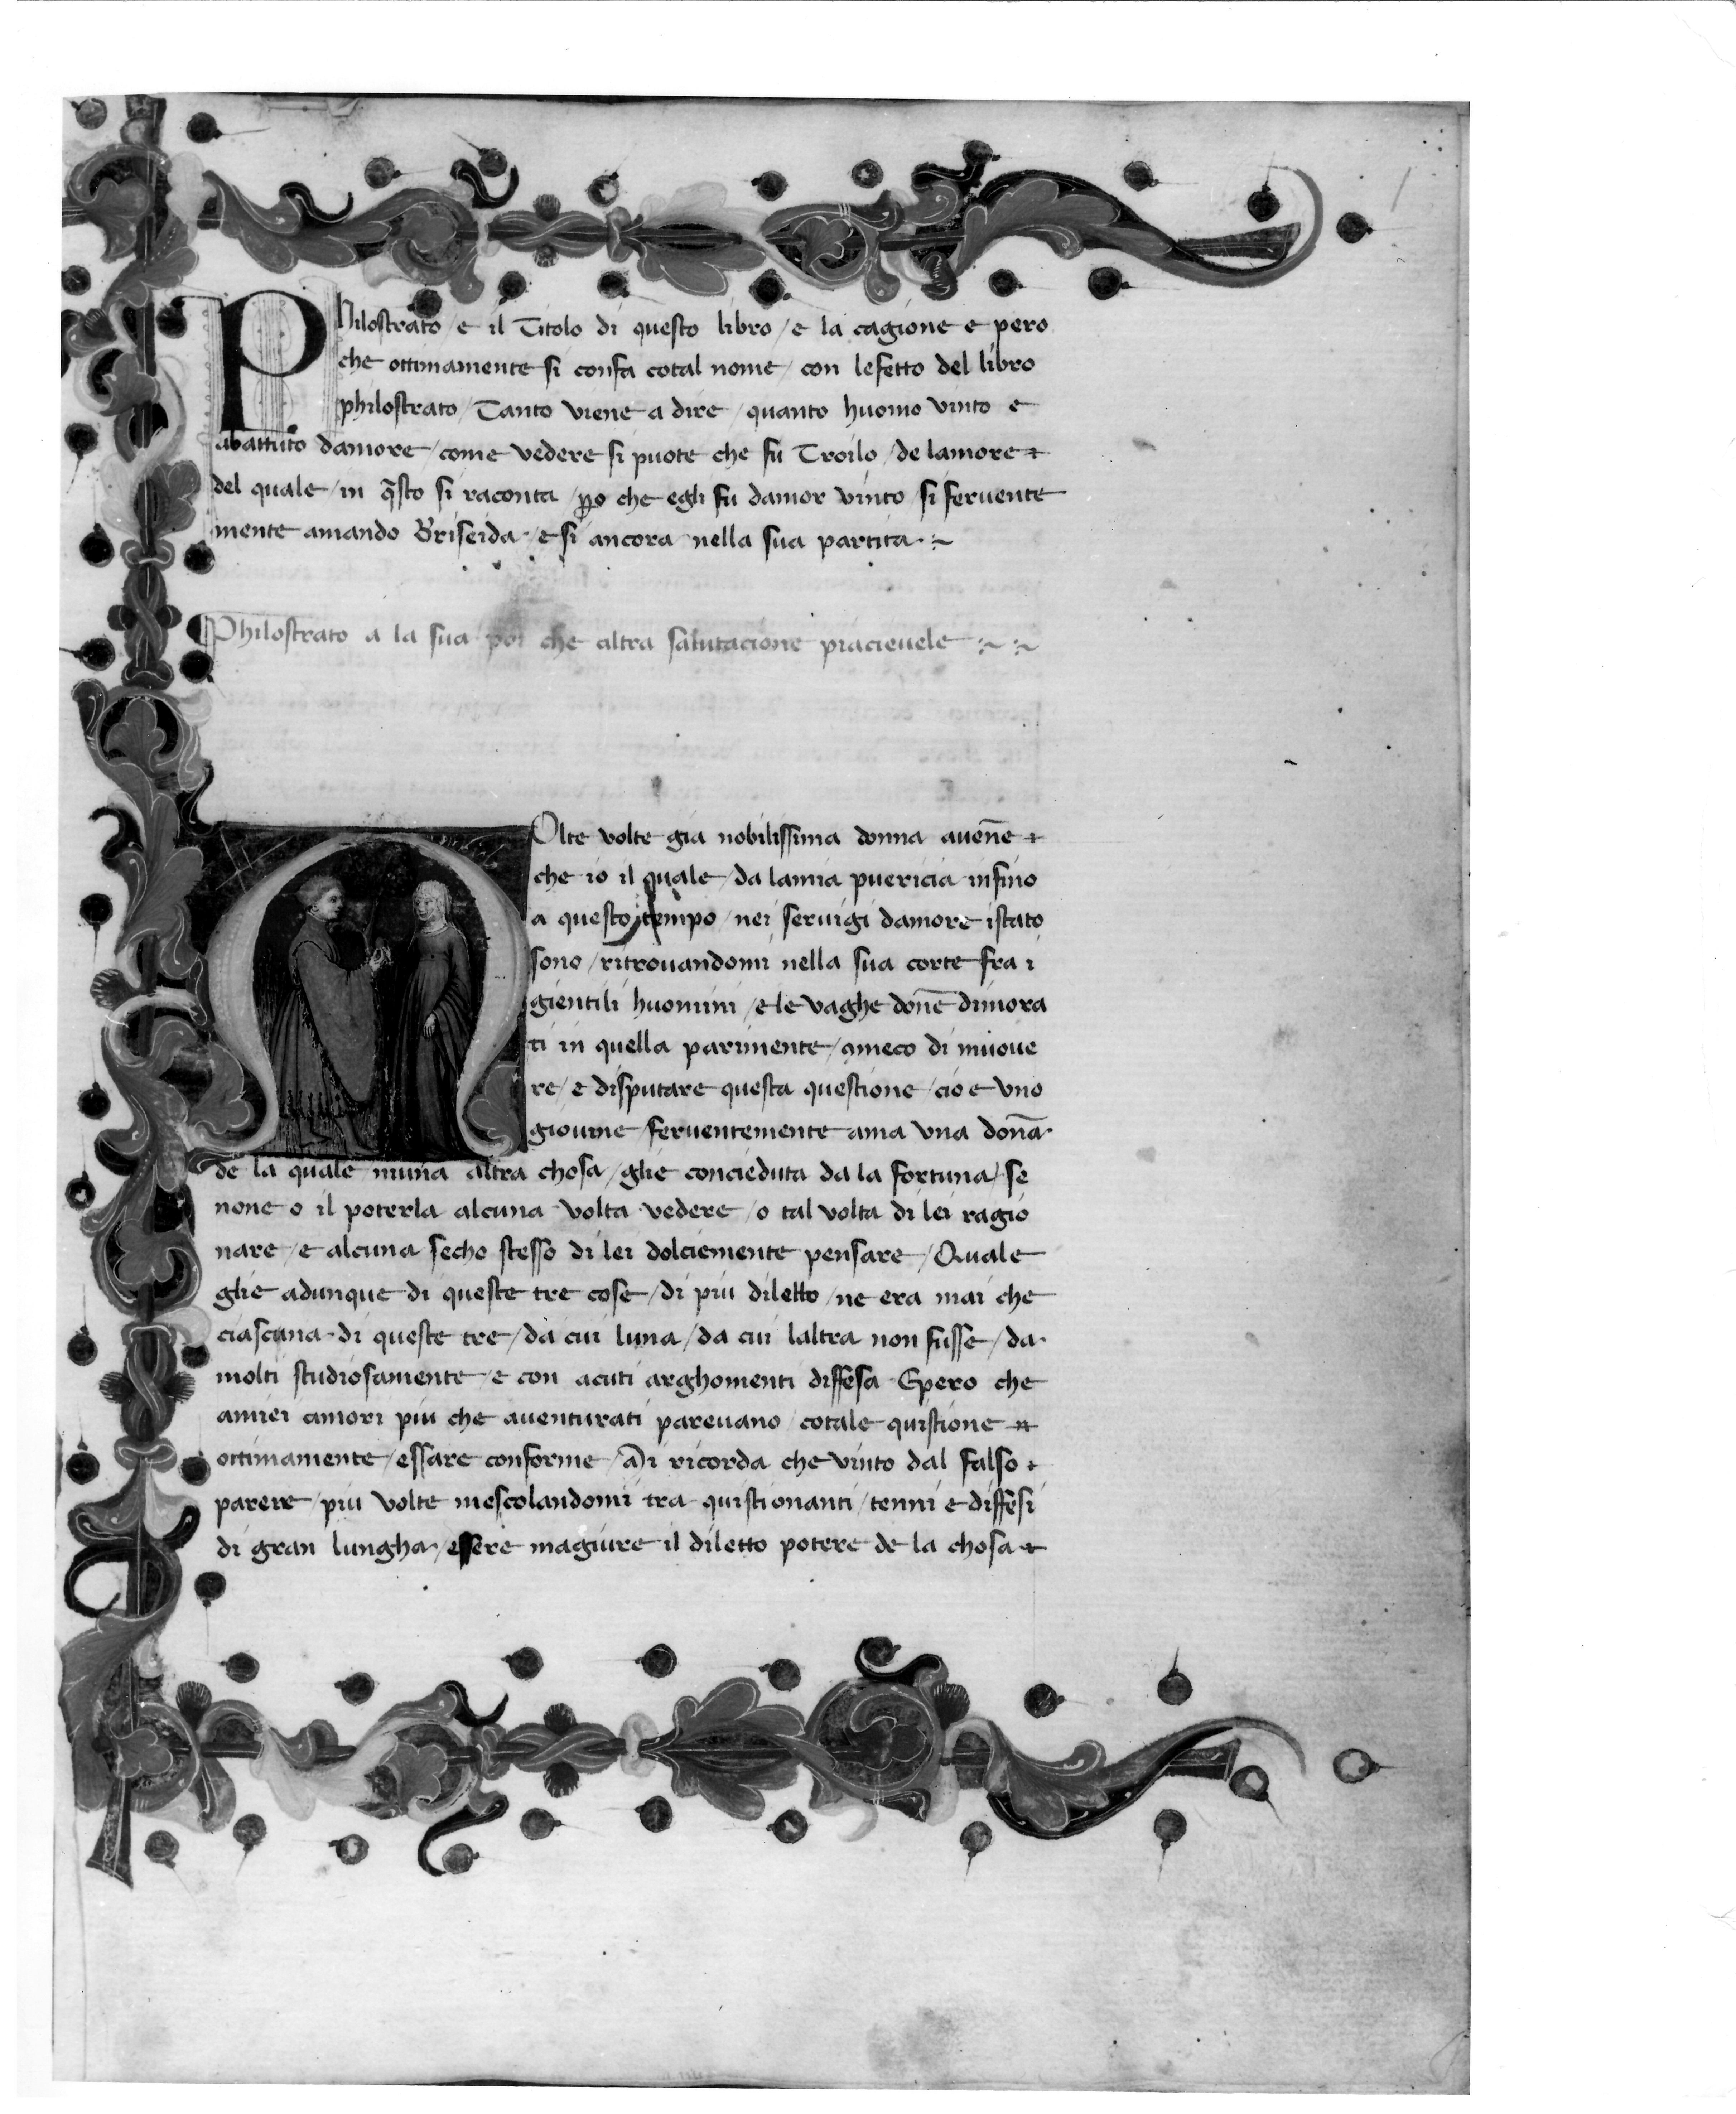 Philostrato / e il Titolo di questo libro / e la cagione e pero
che ottimamente si confa cotal nome / con lefetto del libro
philostrato / Tanto viene a dire / quanto huomo vinto e
abattuto damore / come vedere si puote che fu Troilo / de lamore
del quale / in q̄sto si raconta / ꝑo che egli fu damor vinto / si feruente
mente amando Briseida · e si ancora nella sua partita · ~
Philostrato a la sua poi che altra salutacione piacieuele ~ ~
MOlte volte gia nobilissima donna aueñe
che io il quale / da lamia puericia infino
a questo tempo / nei seruigi damore istato
sono / ritrouandomi nella sua corte fra i
gientili huomini / e le vaghe doñe dimora
ti in quella parimente / 9meco di muoue
re / e disputare questa questione / cio e vno
giouine feruentemente ama vna doña ·
de la quale niuna altra chosa / glie concieduta da la fortuna / se
none o il poterla alcuna volta vedere / o tal volta di lei ragio
nare / e alcuna secho stesso di lei dolciemente pensare / Quale
glie adunque di queste tre cose / di piu diletto / ne era mai che
ciascuna · di queste tre / da cui luna / da cui laltra non fusse / da ·
molti studiosamente / e con acuti arghomenti diffesa Epero che
amiei amori piu che auenturati pareuano / cotale quistione
ottimamente / essare conforme / Mi ricorda che vinto dal falso
parere / piu volte mescolandomi tra quistionanti / tenni e diffesi
di gran lungha / essere magiure il diletto potere de la chosa